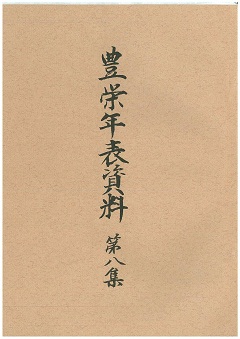 豊栄年表資料 第八集